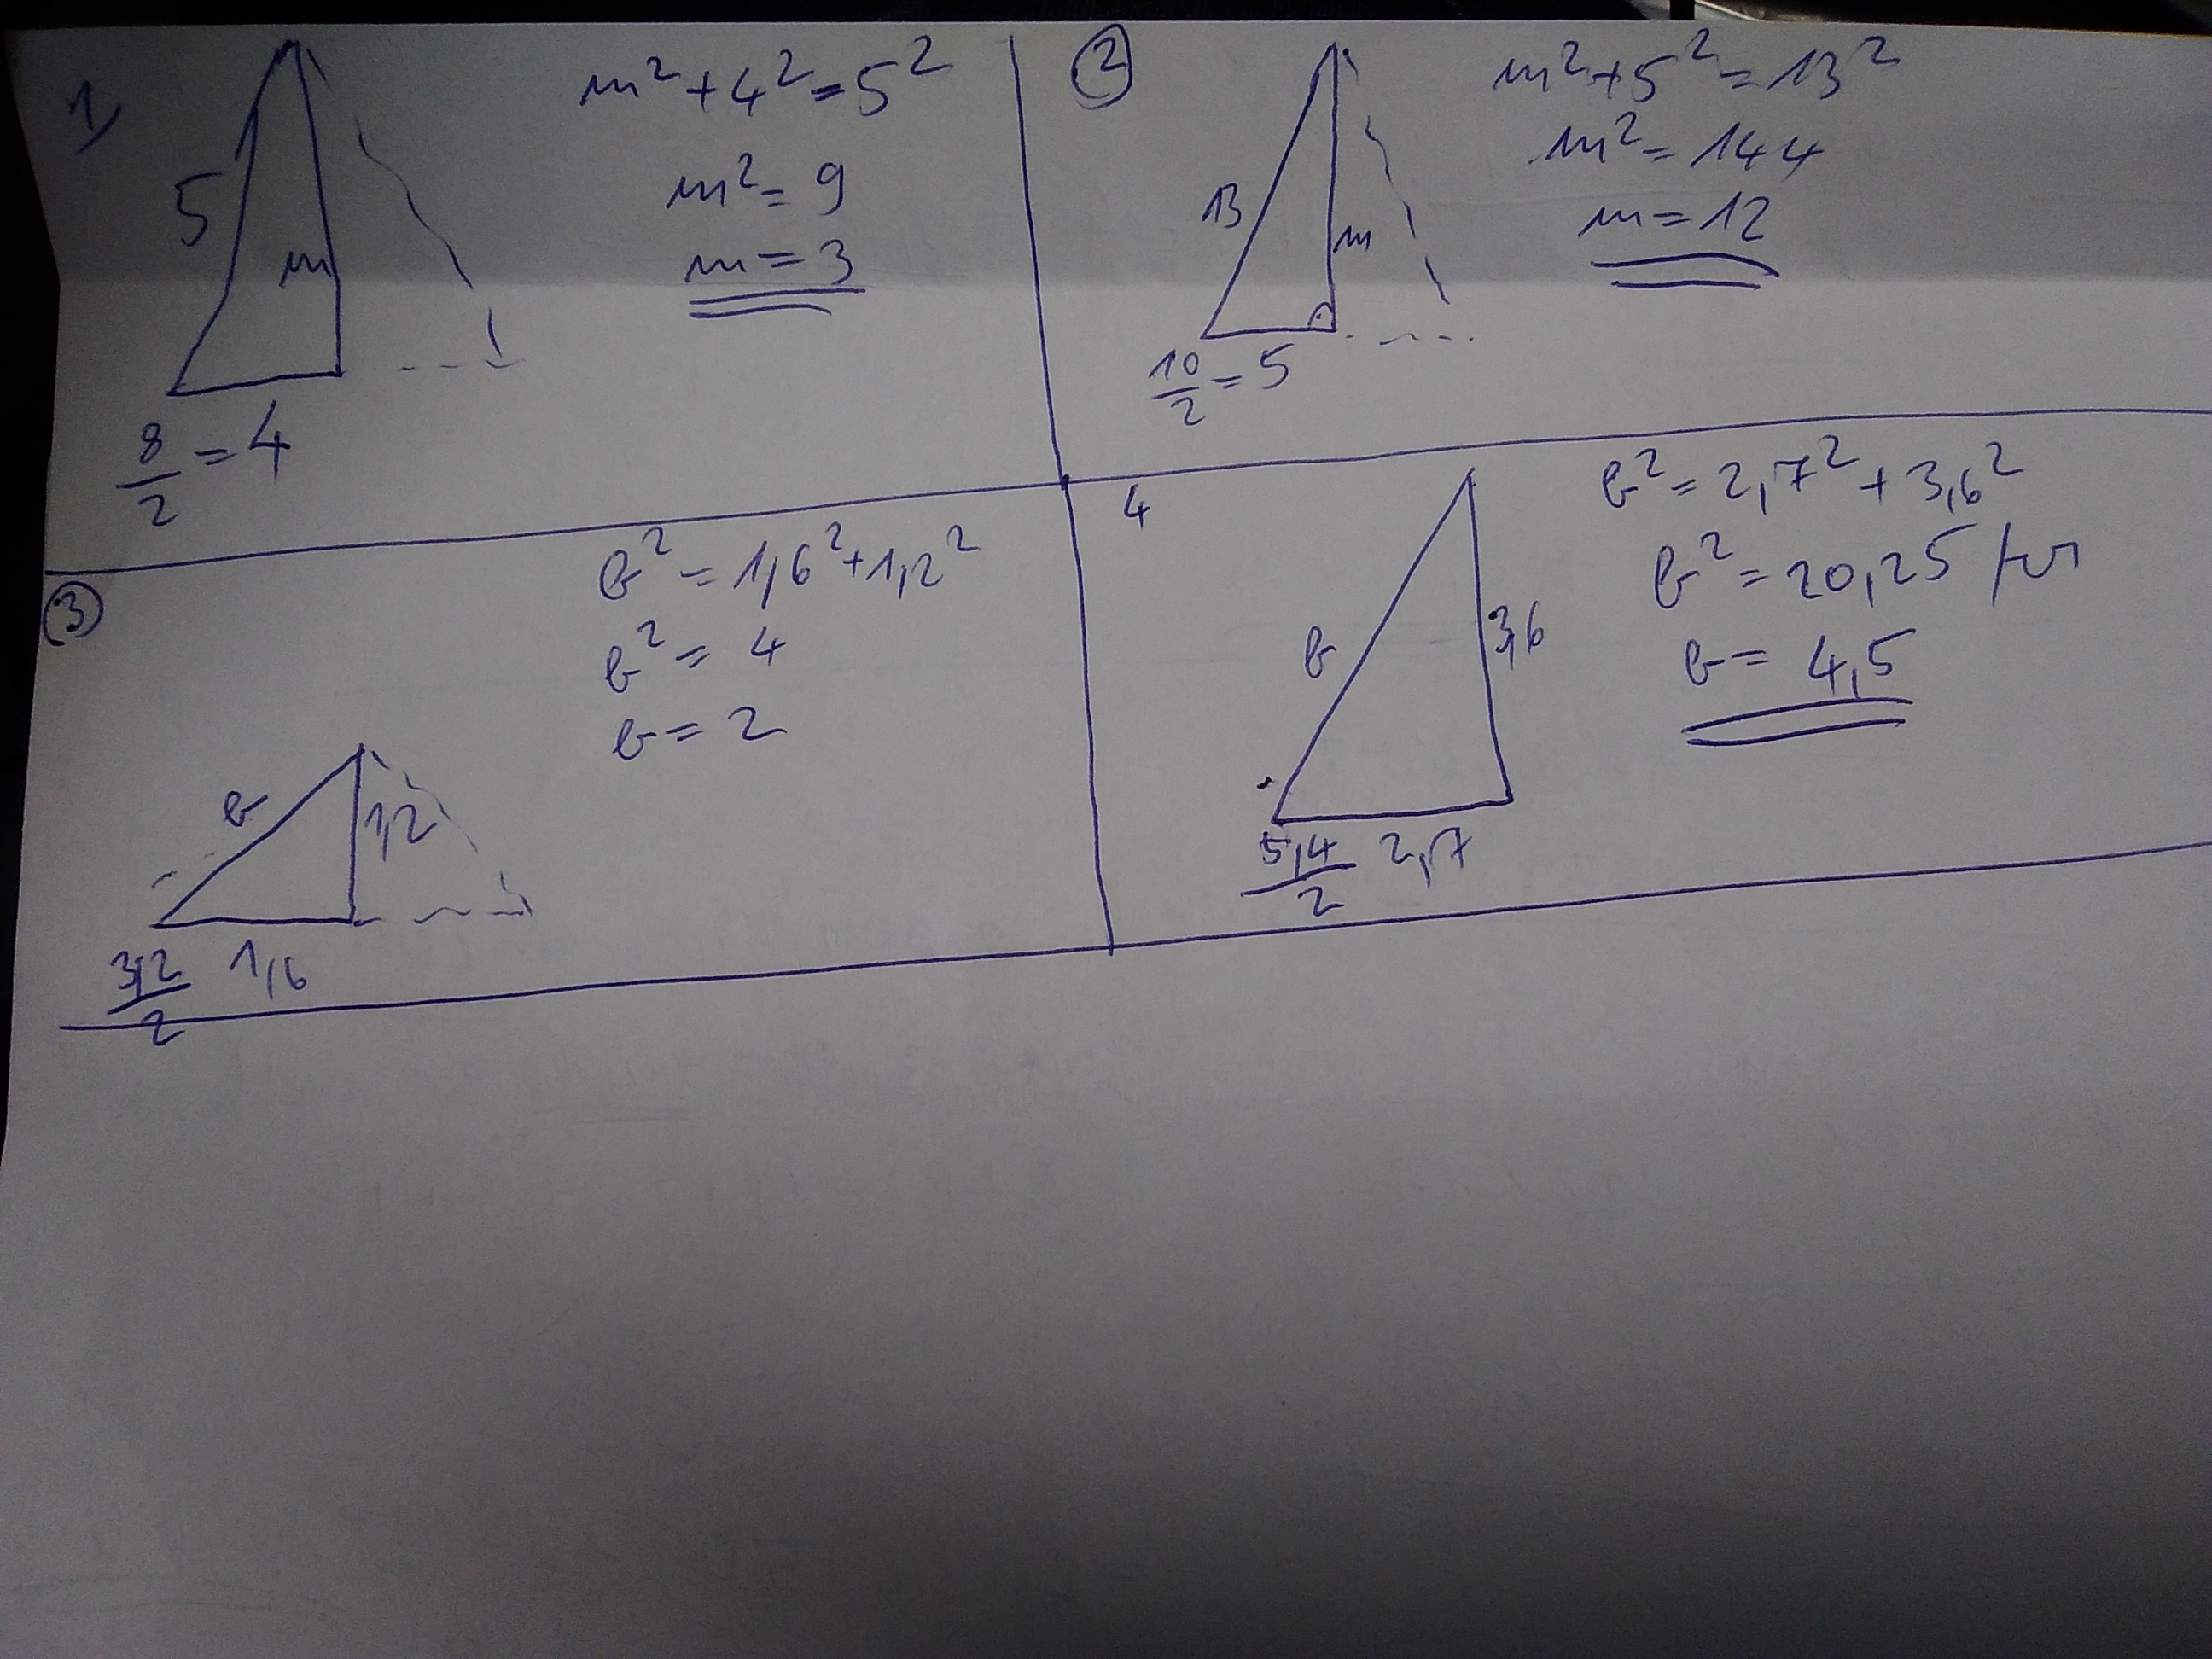 1)
5
m
8/2 = 4
m² + 4² = 5²
m² = 9
m = 3
2
13
m
10/2 = 5
m² + 5² = 13²
m² = 144
m = 12
3
b² = 1,6² + 1,2²
b² = 4
b = 2
b
1,2
3,2/2 1,6
4
b
3,6
5,4/2 2,7
b² = 2,7² + 3,6²
b² = 20,25 /√
b = 4,5